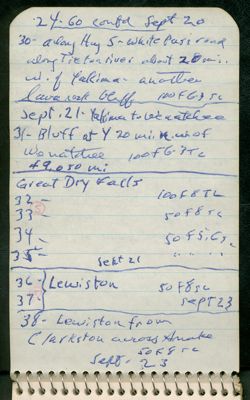 24-60 contd Sept 20
30- along Hwy 5 - White Pass road
along Tieton river about 20 mi..
w. of Yakima - another
Lava rock bluff 100 F 6.3 SL
Sept. 21 - Yakima to Wenatchee
31- Bluff at Y 20 mi. n. w. of
Wenatchee 100 F 6.3 SL
49,050 mi
Great Dry Falls
32- 100 F 8 SL
33 50 F 8 SL
34 50 F 5.6 SL
35- " " " "
Sept 21
36- Lewiston 50 F 8 SL
37- Sept 23
38- Lewiston from
Clarkston across Snake
50 F 8 SL
Sept- 23